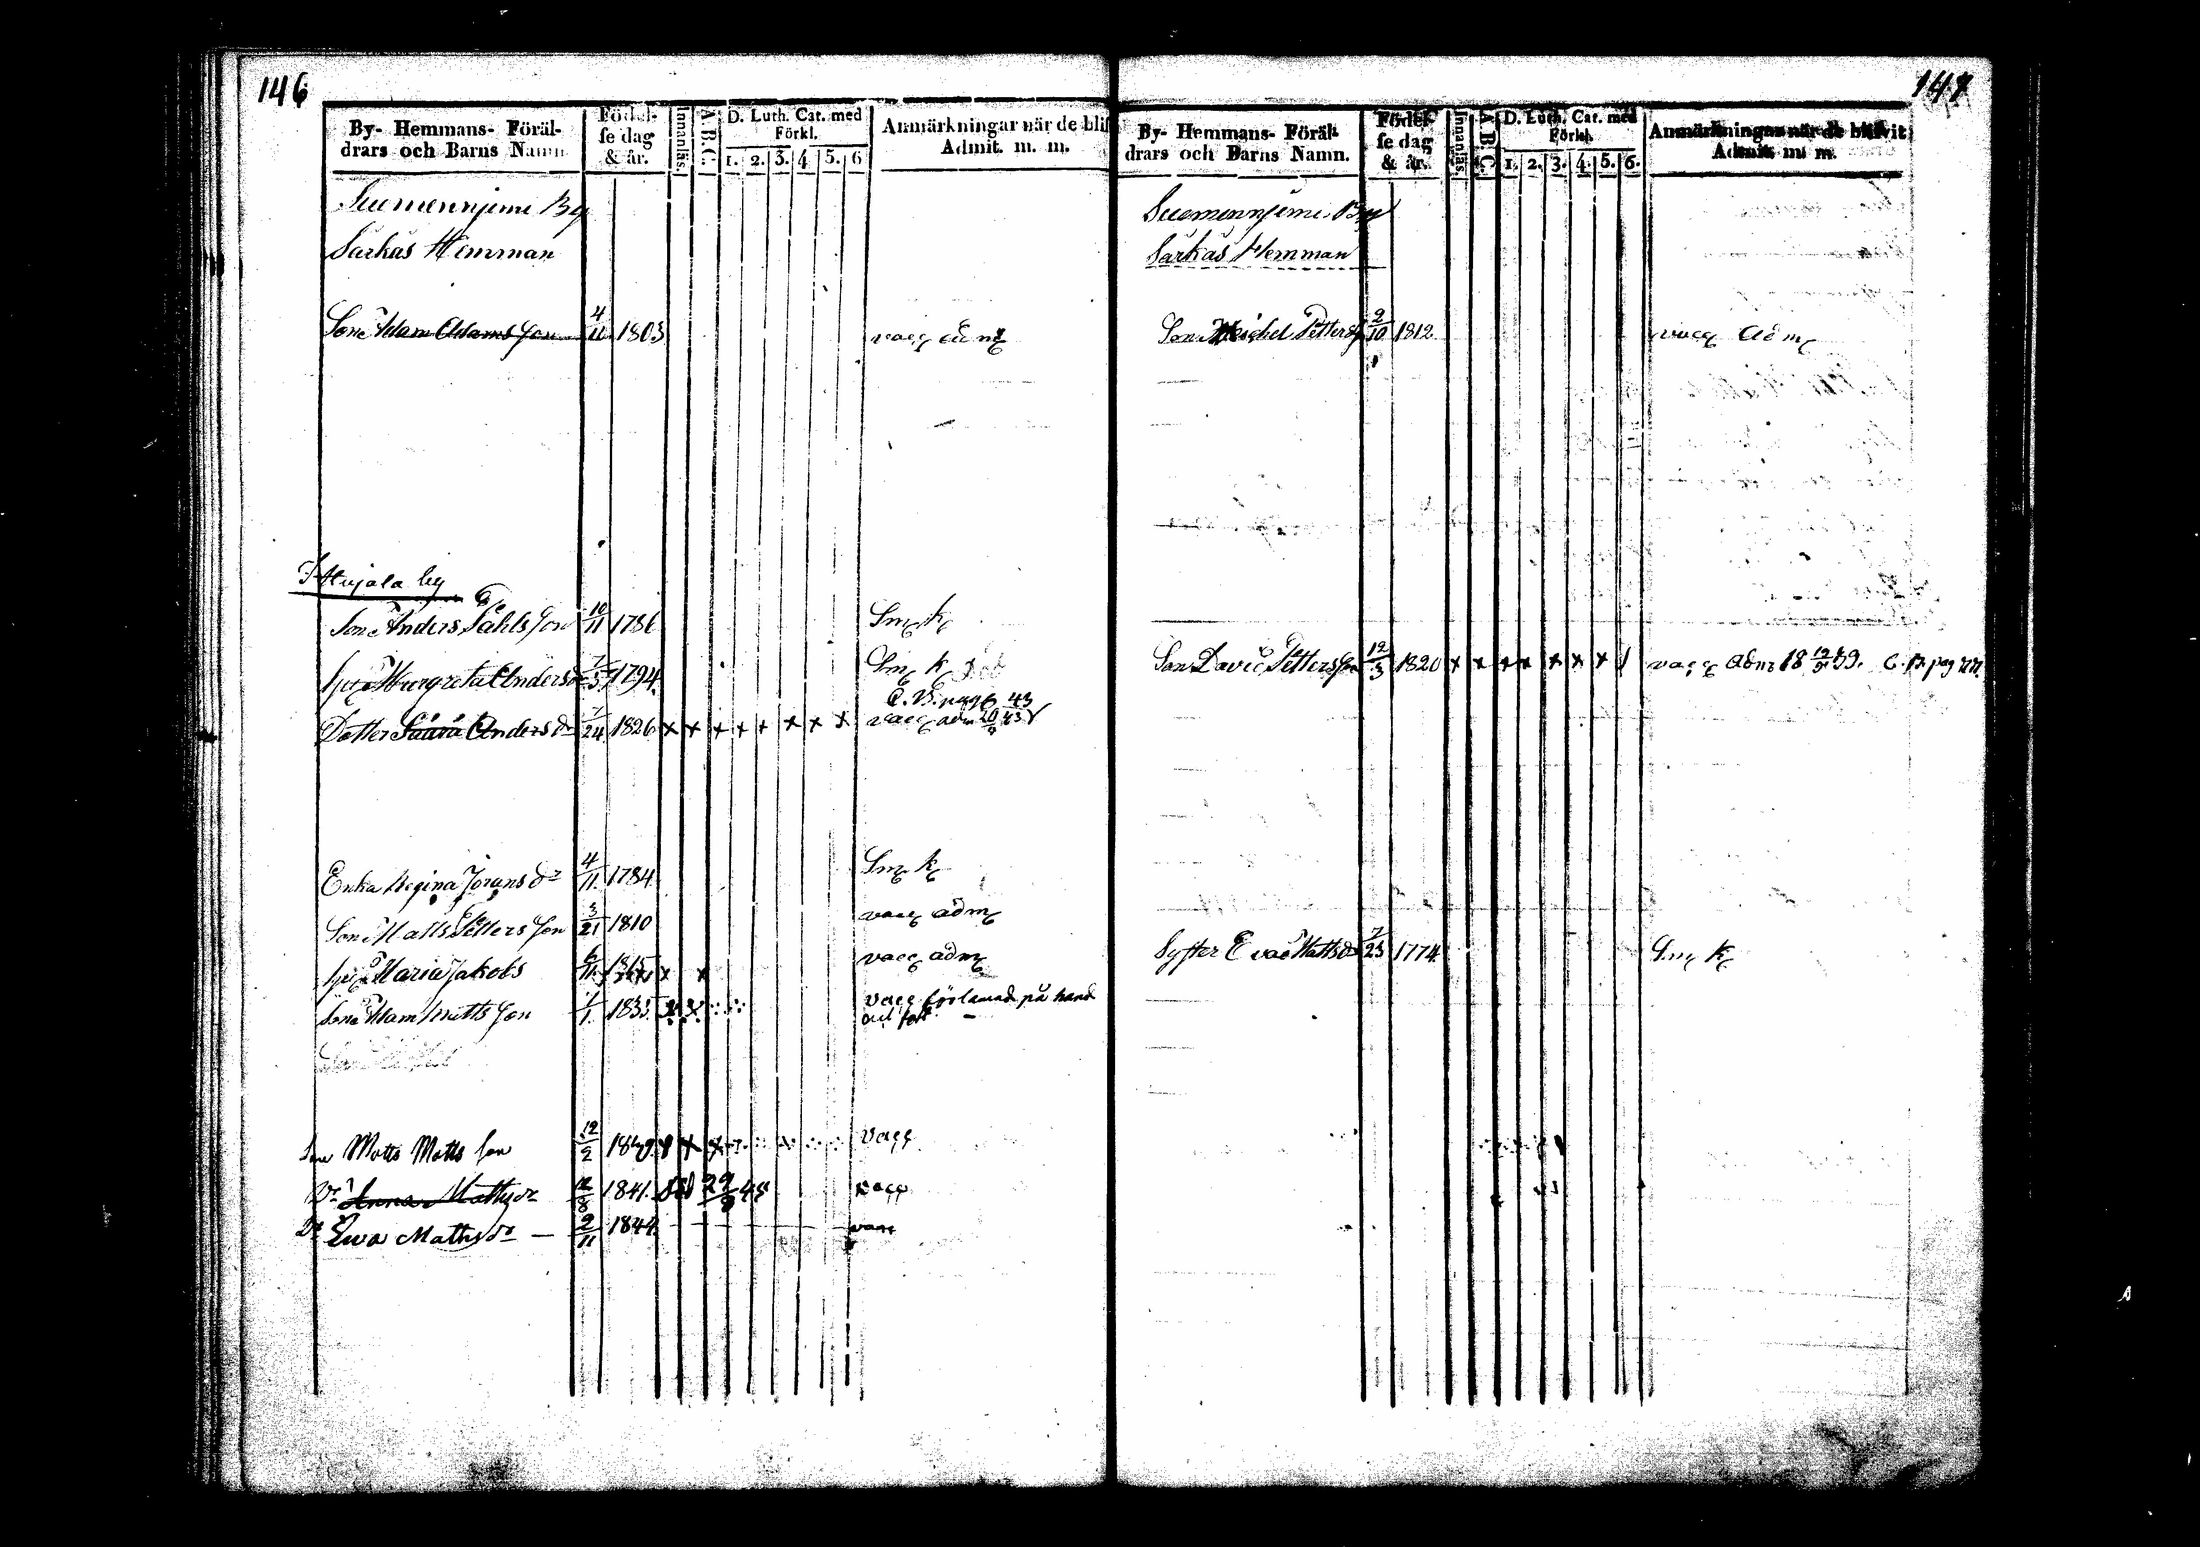 146
By- Hemmans- Föräl-
drars och Barns Namn
Födel-
se dag
& år.
Innanläs.
A.B.C.
D. Luth. Cat. med
Förkl.
1. 2. 3. 4 5. 6
Anmärkningar när de blif
Admit. m. m.
Suomennjemi By
Särkäs Hemman
Son Adam Adams Son 4/11 1803 vacc adm
Attujala by
Son Anders Påhls Son 10/11 1786 Sm k
Margreta Anders 1794 Sm k
C. B. pag 43
Dotter Anders dr 7/24 1826 x x x x x x x x vacc adm 43
Enka Regina Jörans dr 4/11 1784 Sm k
Son Matts Petters Son 3/21 1810 vacc adm
Maria Jakobs 6/11 1815 x x vacc adm
Son Adam Matts Son 1/1 1835 vacc förlamad på hand
och fot
Son Matts Matts Son 12/2 1840 vacc
Dr Anna Mattsdr 12/8 1841 död 45 vacc
Dr Ewa Mattsdr 2/11 1844 vacc
147
By- Hemmans- Föräl-
drars och Barns Namn.
Födel-
se dag
& år.
Innanläs.
A.B.C.
D. Luth. Cat. med
Förkl.
1. 2. 3. 4. 5. 6.
Anmärkningar när de blifvit
Admit. m. m.
Suomennjemi By
Särkäs Hemman
Son Michel Petters 2/10 1812 vacc adm
Son David Petters Son 12/3 1820 x x x x x x x vacc adm 18 39. C. B. pag
Syster Eva Mattsdr 7/23 1774 Sm k